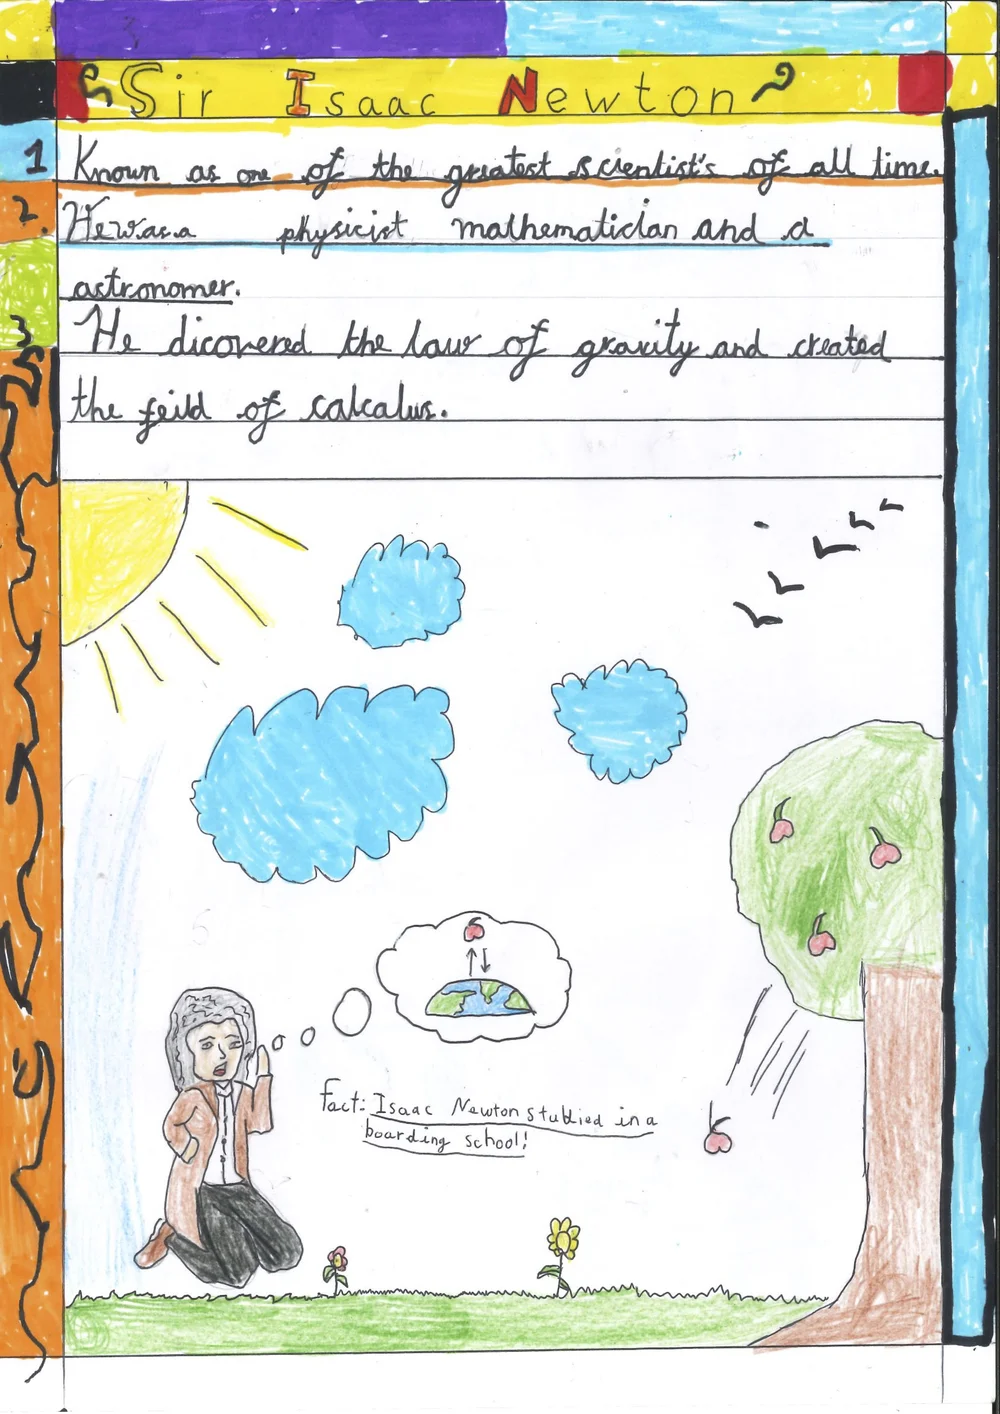 Sir Isaac Newton
1 Known as one of the greatest scientist's of all time.
2. He was a physicist mathematician and a
astronomer.
3 He dicovered the law of gravity and created
the feild of calcalus.
fact: Isaac Newton studied in a
boarding school!